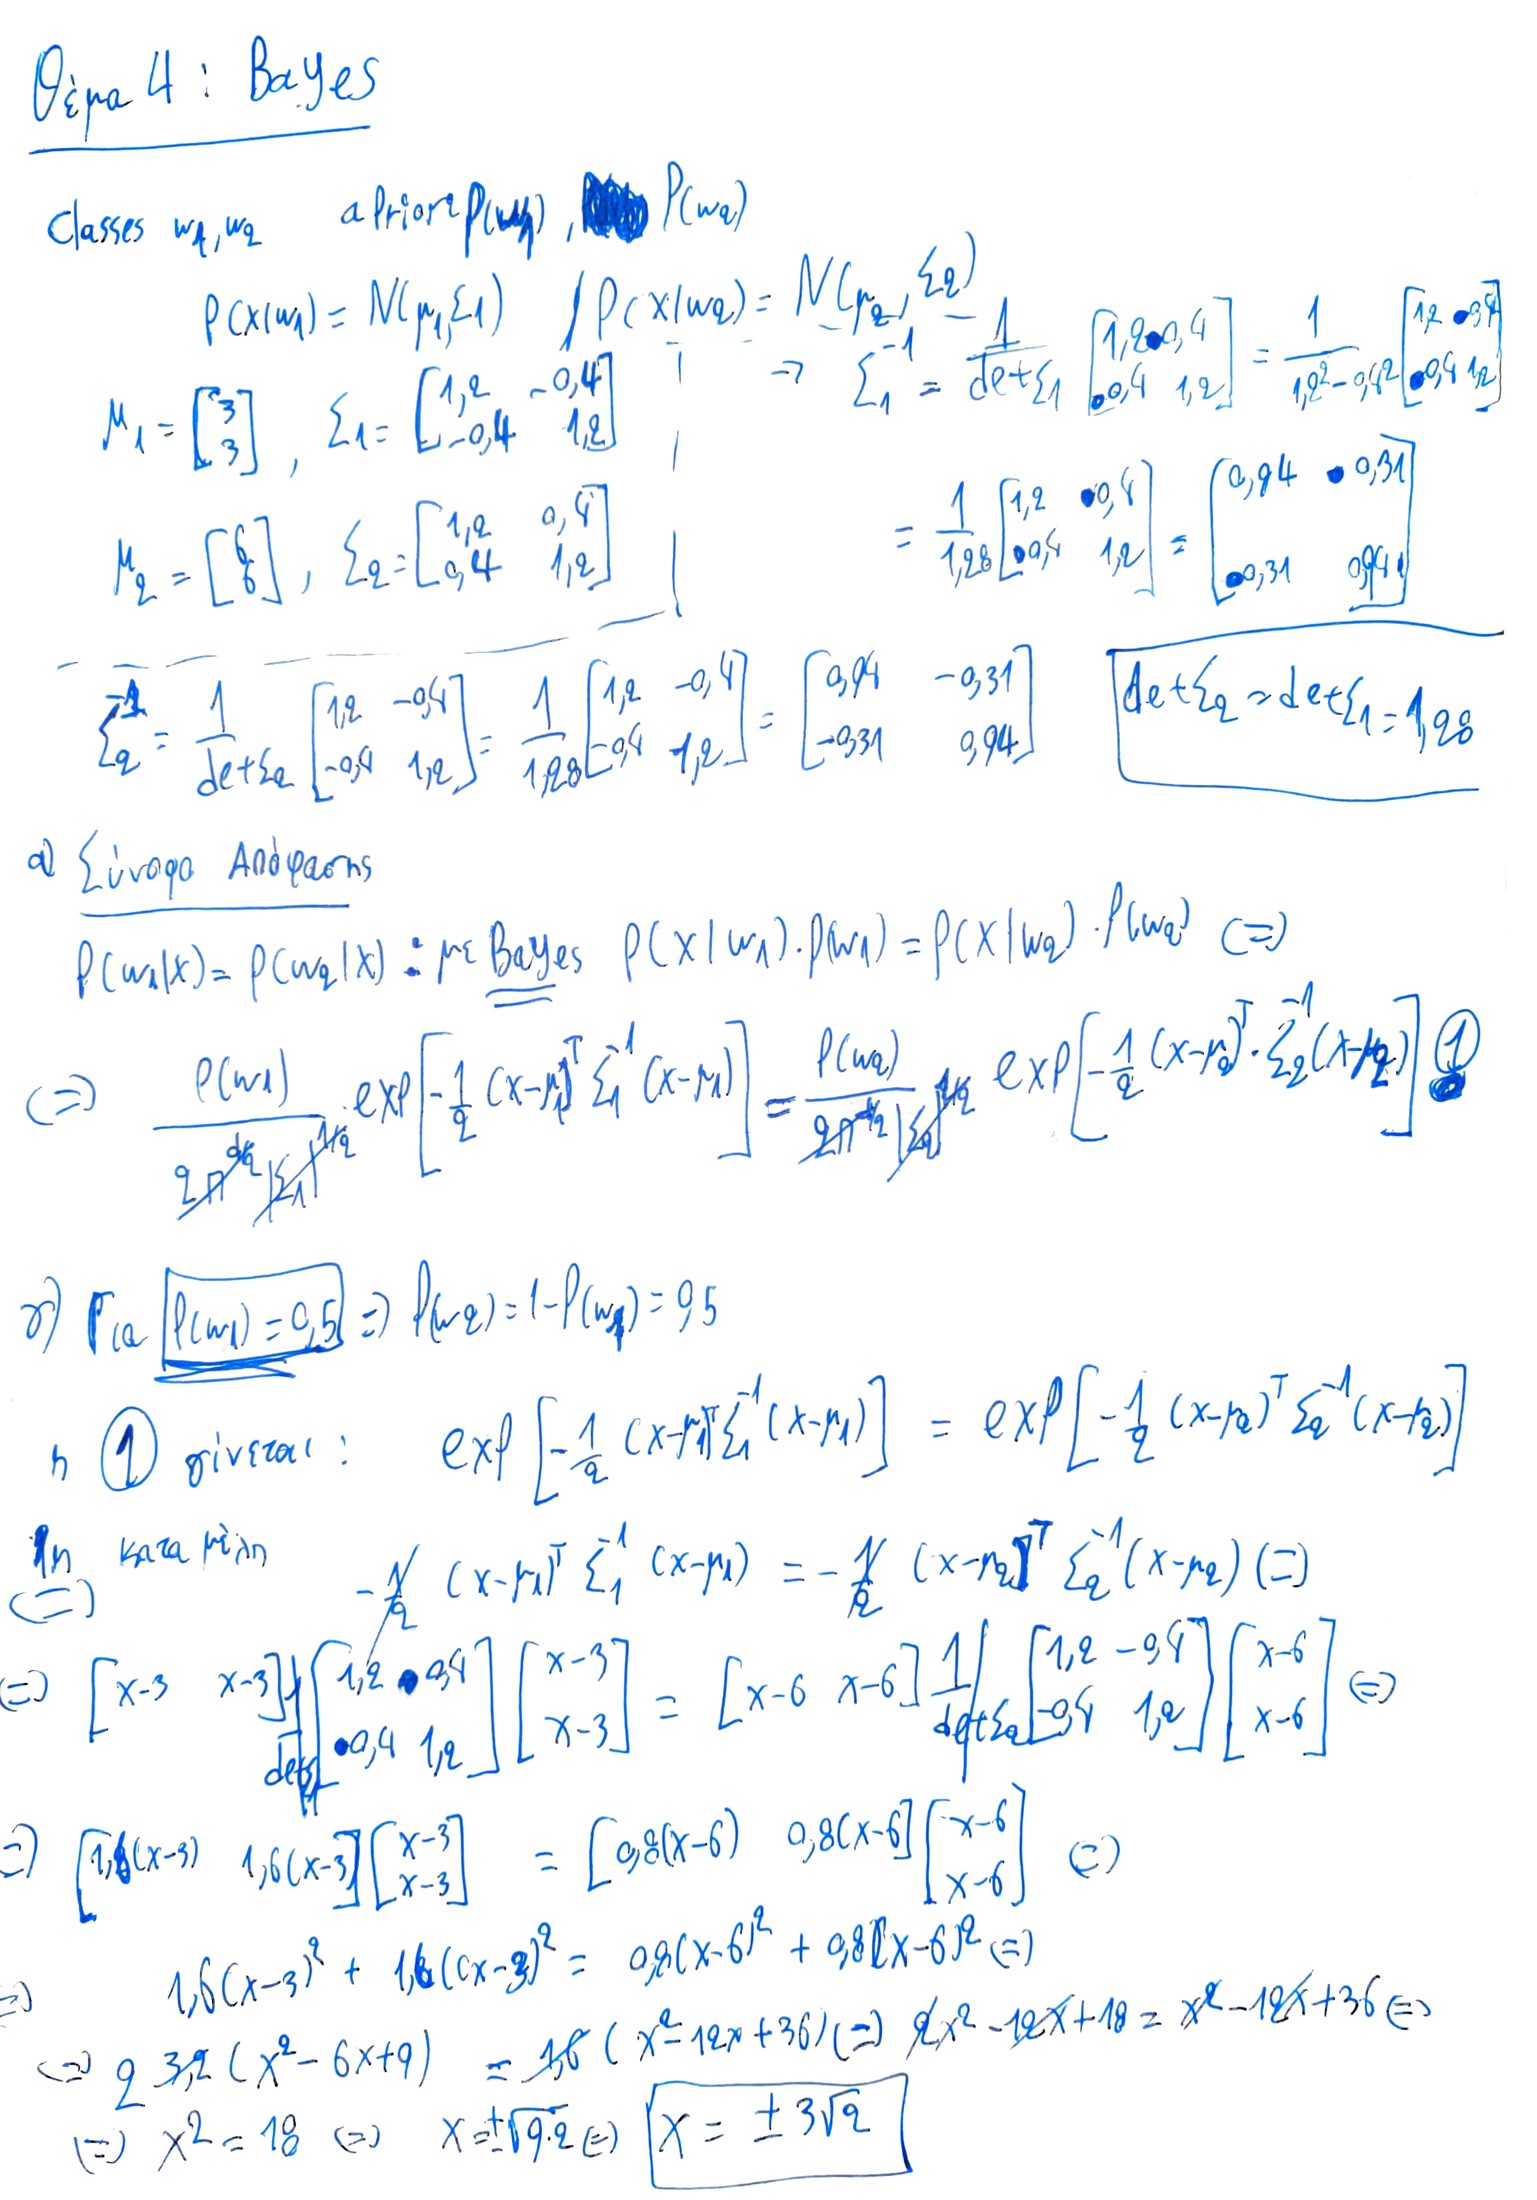 Θέμα 4: Bayes
Classes w1, w2 a priori P(w1), P(w2)
P(x|w1) = N(μ1, Σ1) / P(x|w2) = N(μ2, Σ2)
μ1 = [3 3], Σ1 = [1,2 -0,4 -0,4 1,2] => Σ1^-1 = 1/detΣ1 [1,2 0,4 0,4 1,2] = 1/(1,2²-0,4²) [1,2 0,4 0,4 1,2]
μ2 = [6 6], Σ2 = [1,2 0,4 0,4 1,2] = 1/1,28 [1,2 0,4 0,4 1,2] = [0,94 0,31 0,31 0,94]
Σ2^-1 = 1/detΣ2 [1,2 -0,4 -0,4 1,2] = 1/1,28 [1,2 -0,4 -0,4 1,2] = [0,94 -0,31 -0,31 0,94] detΣ2 = detΣ1 = 1,28
α) Σύνορο Απόφασης
P(w1|x) = P(w2|x) : με Bayes P(x|w1)·P(w1) = P(x|w2)·P(w2) (=)
(=) P(w1)/(2π^d/2 |Σ1|^1/2) · exp[-1/2 (x-μ1)^T Σ1^-1 (x-μ1)] = P(w2)/(2π^d/2 |Σ2|^1/2) exp[-1/2 (x-μ2)^T · Σ2^-1 (x-μ2)] ①
γ) Για P(w1) = 0,5 => P(w2) = 1-P(w1) = 0,5
η ① γίνεται: exp[-1/2 (x-μ1)^T Σ1^-1 (x-μ1)] = exp[-1/2 (x-μ2)^T Σ2^-1 (x-μ2)]
ln κατα μέλη
(=) -1/2 (x-μ1)^T Σ1^-1 (x-μ1) = -1/2 (x-μ2)^T Σ2^-1 (x-μ2) (=)
(=) [x-3 x-3] 1/detΣ1 [1,2 0,4 0,4 1,2] [x-3 x-3] = [x-6 x-6] 1/detΣ2 [1,2 -0,4 -0,4 1,2] [x-6 x-6] (=)
(=) [1,6(x-3) 1,6(x-3)] [x-3 x-3] = [0,8(x-6) 0,8(x-6)] [x-6 x-6] (=)
(=) 1,6(x-3)² + 1,6(x-3)² = 0,8(x-6)² + 0,8(x-6)² (=)
(=) 2 3,2 (x²-6x+9) = 1,6 (x²-12x+36) (=) 2x²-12x+18 = x²-12x+36 (=)
(=) x² = 18 (=) x = ±√9·2 (=) x = ±3√2